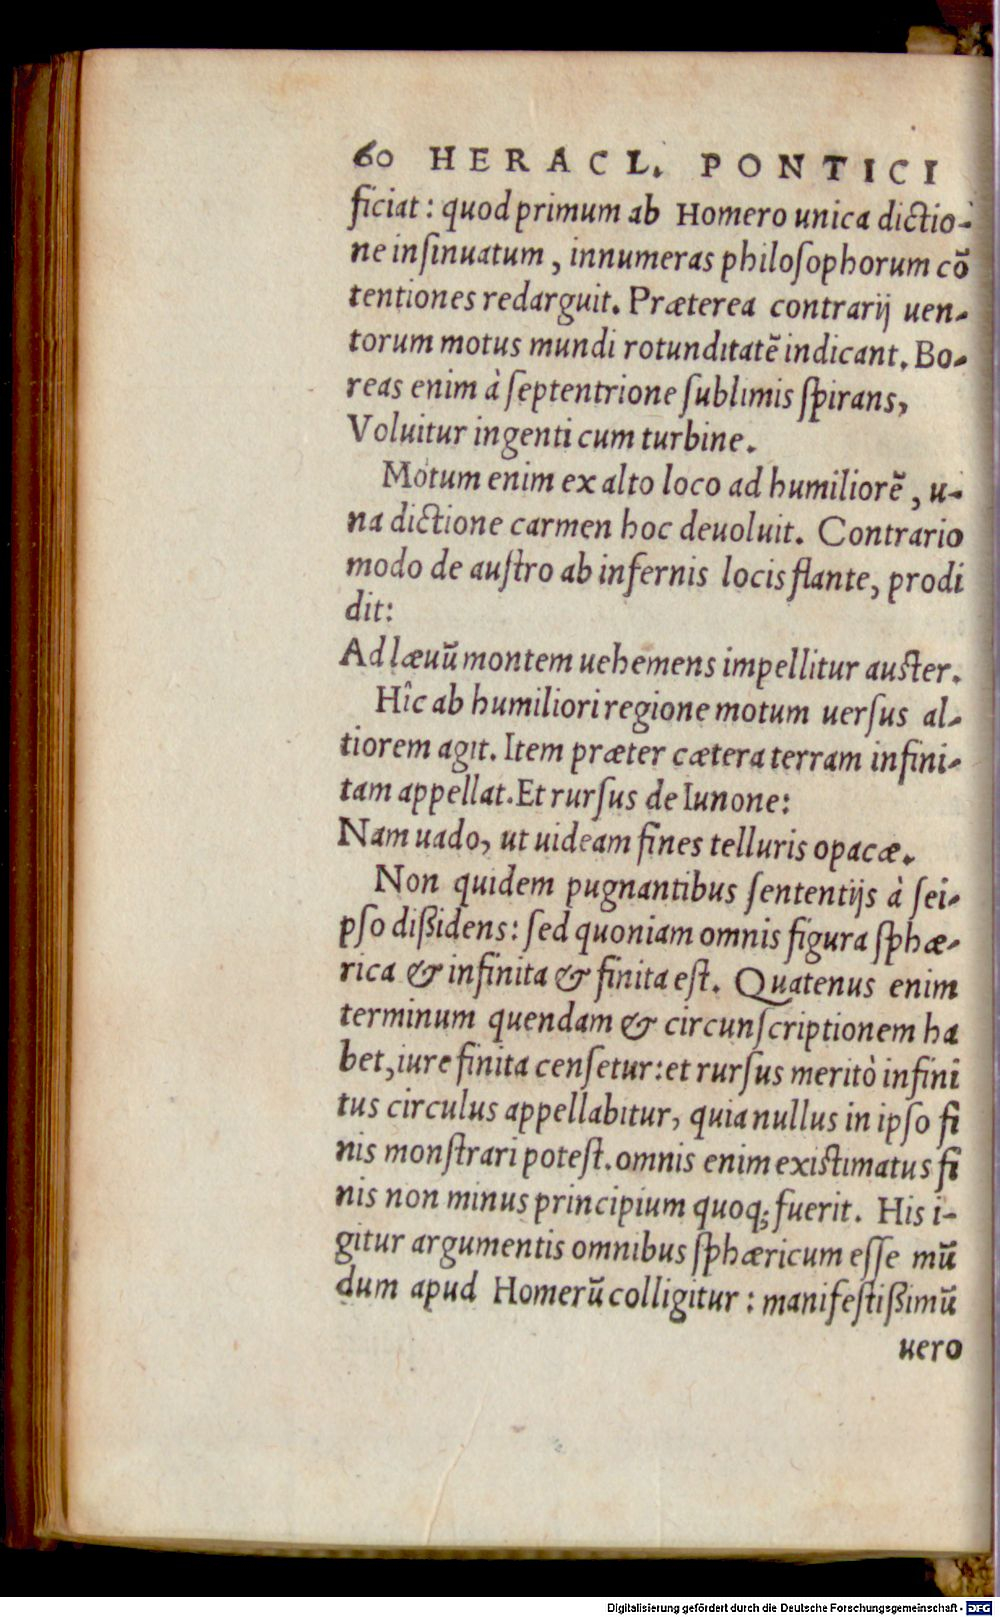 60 HERACL. PONTICI
ficiat: quod primum ab Homero unica dictio-
ne insinuatum, innumeras philosophorum cō
tentiones redarguit. Præterea contrarij uen-
torum motus mundi rotunditatē indicant. Bo-
reas enim à septentrione sublimis spirans,
Voluitur ingenti cum turbine.
Motum enim ex alto loco ad humiliorē, u-
na dictione carmen hoc deuoluit. Contrario
modo de austro ab infernis locis flante, prodi
dit:
Ad læuū montem uehemens impellitur auster.
Hîc ab humiliori regione motum uersus al-
tiorem agit. Item præter cætera terram infini-
tam appellat. Et rursus de Iunone:
Nam uado, ut uideam fines telluris opacæ.
Non quidem pugnantibus sententijs à sei-
pso dißidens: sed quoniam omnis figura sphæ-
rica & infinita & finita est. Quatenus enim
terminum quendam & circunscriptionem ha
bet, iure finita censetur: et rursus meritò infini
tus circulus appellabitur, quia nullus in ipso fi
nis monstrari potest. omnis enim existimatus fi
nis non minus principium quoq; fuerit. His i-
gitur argumentis omnibus sphæricum esse mū
dum apud Homerū colligitur: manifestißimū
uero
Digitalisierung gefördert durch die Deutsche Forschungsgemeinschaft - DFG